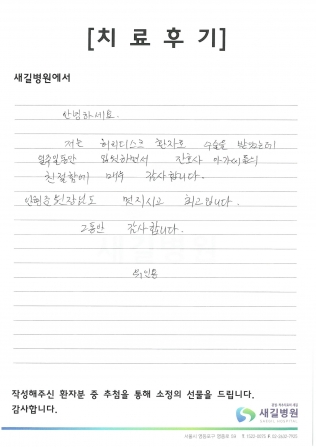 [치료후기]
새길병원에서
안녕하세요.
저는 허리디스크 환자로 수술을 받았는데
일주일동안 입원하면서 간호사 아가씨들의
친절함에 매우 감사합니다.
원장님도 멋지시고 최고입니다.
그동안 감사합니다.
작성해주신 환자분 중 추첨을 통해 소정의 선물을 드립니다.
감사합니다.
새길병원
SAEGIL HOSPITAL